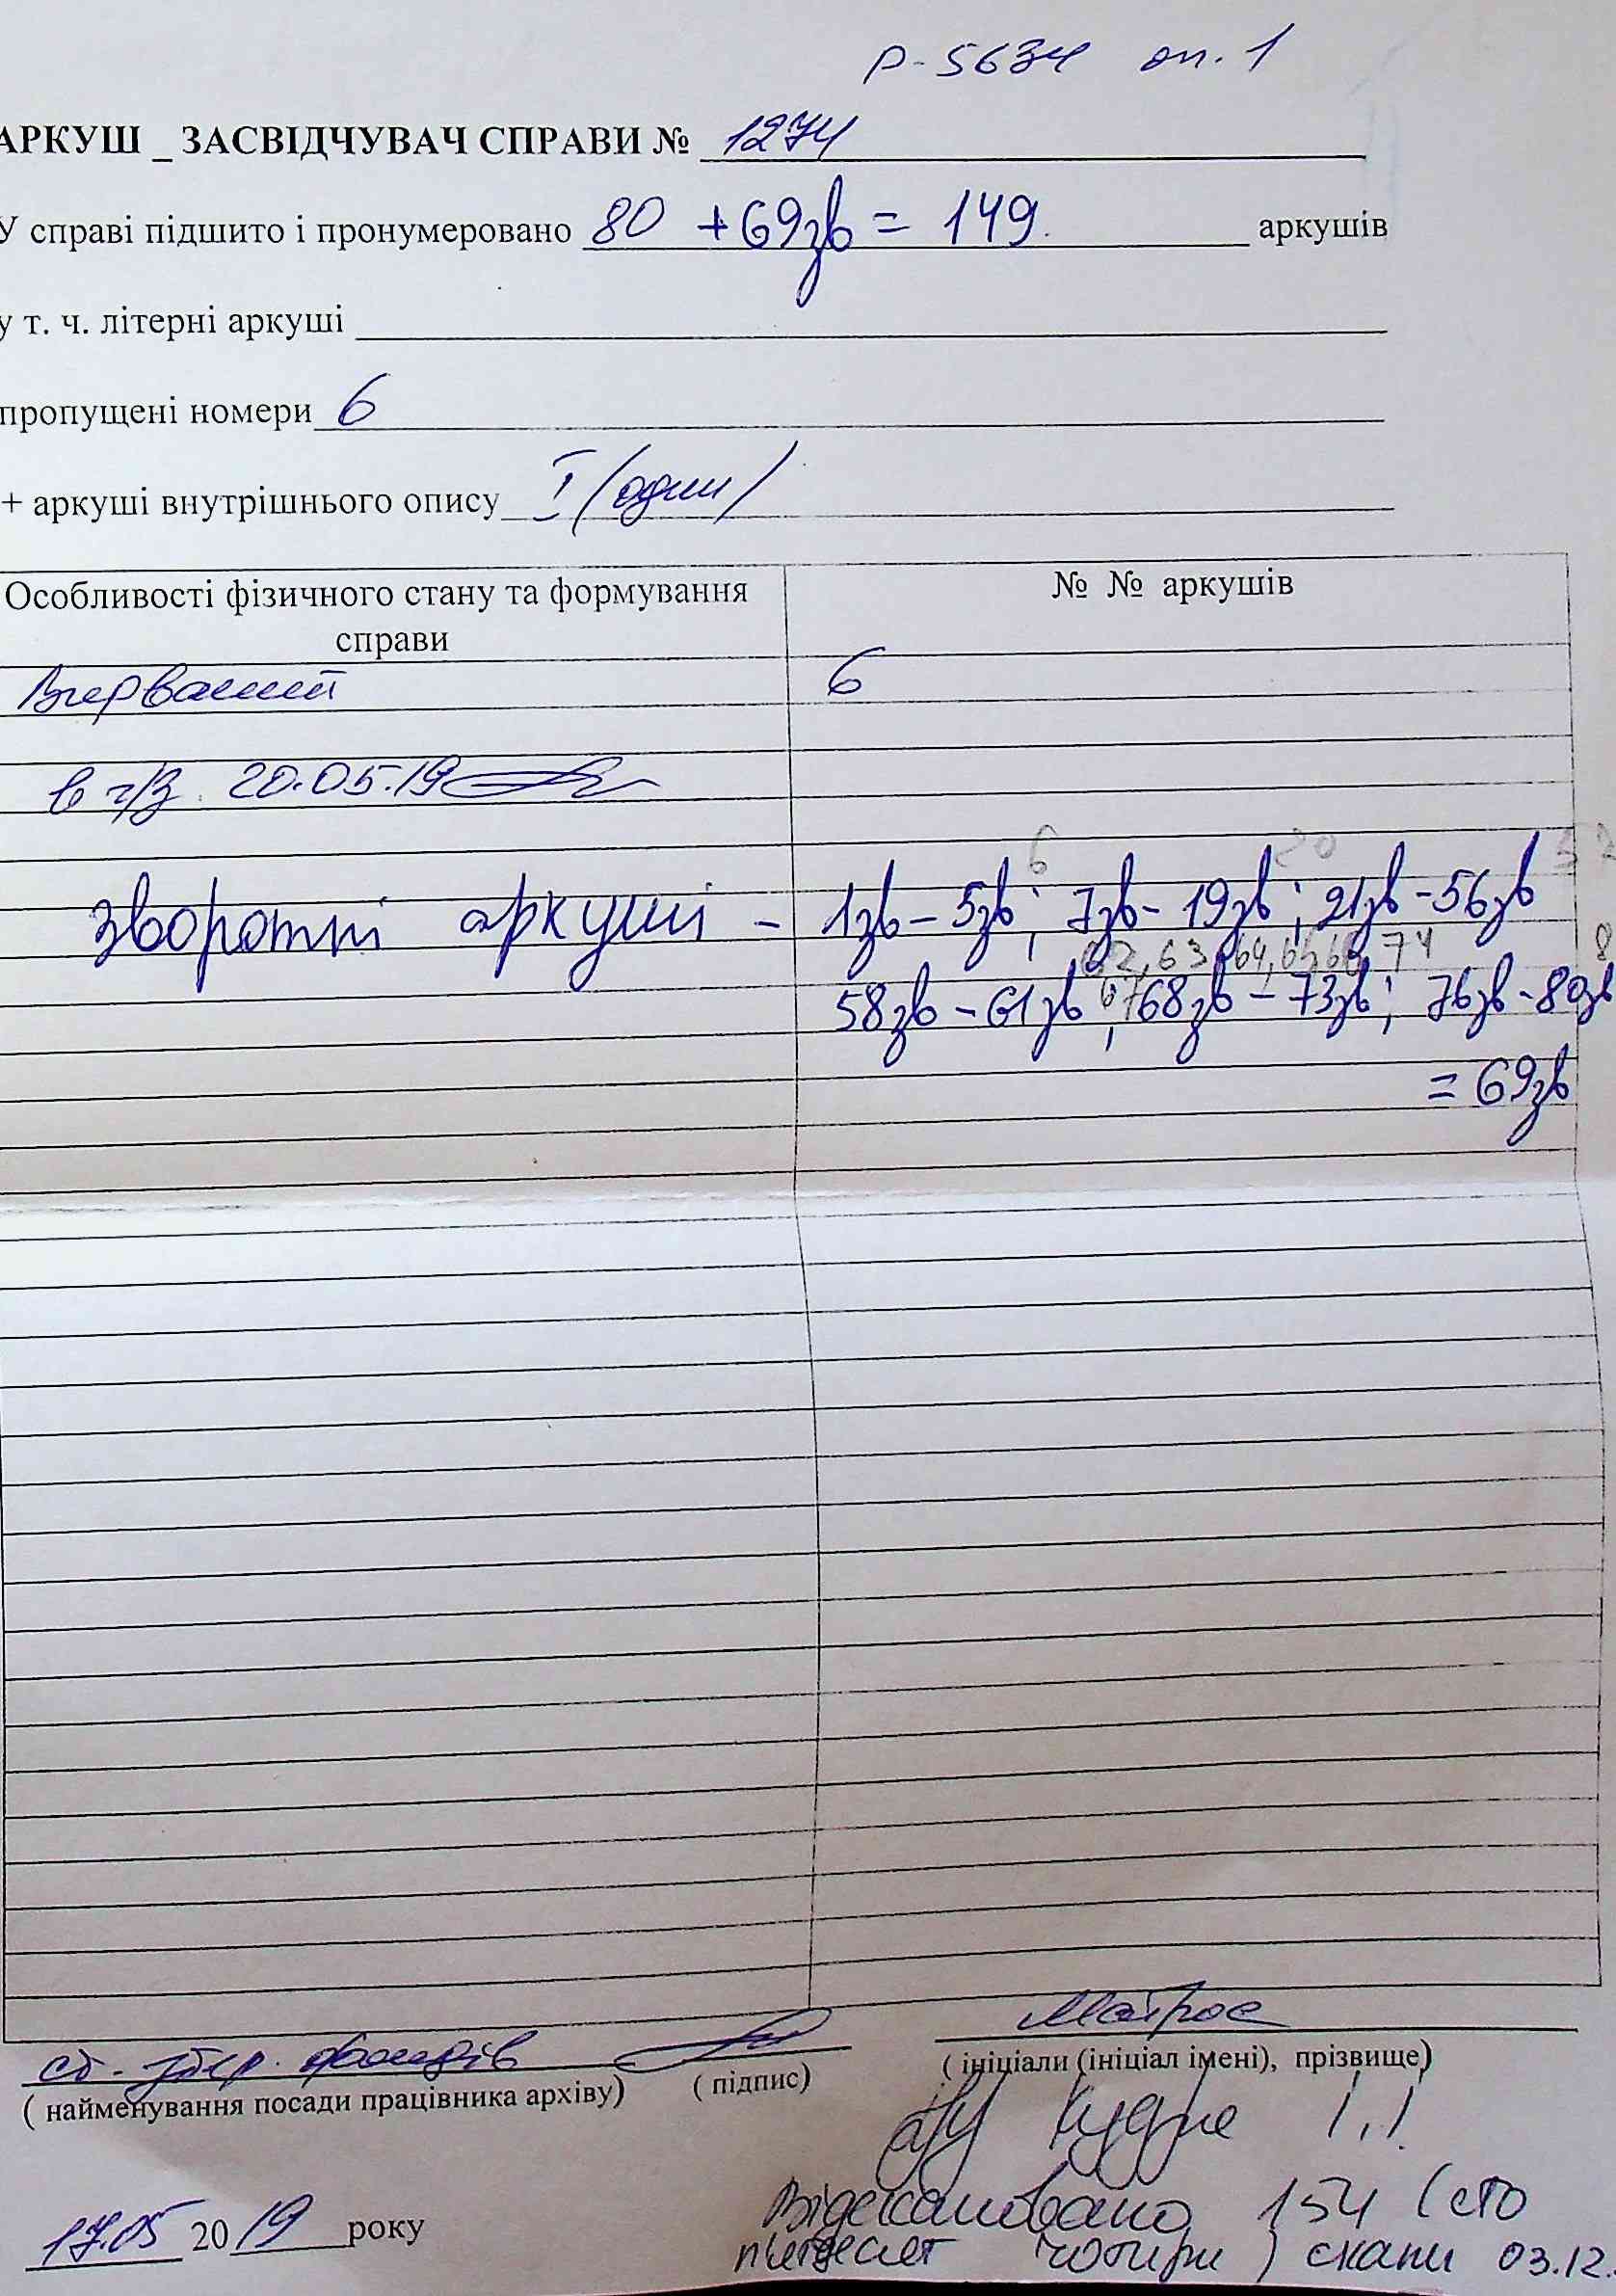 Р-5634 оп. 1
АРКУШ _ ЗАСВІДЧУВАЧ СПРАВИ № 1274
У справі підшито і пронумеровано 80 + 69зв = 149 аркушів
у т. ч. літерні аркуші
пропущені номери 6
+ аркуші внутрішнього опису I (один)
Особливості фізичного стану та формування справи
№ № аркушів
Вирваний 6
в г/з. 20.05.19
6 20
зворотні аркуші - 1зв - 5зв; 7зв - 19зв; 21зв - 56зв
62, 63, 64, 65, 66, 74
58зв - 61зв; 67 68зв - 73зв; 76зв - 80зв
= 69зв
ст. збер. фондів
Матрос
( найменування посади працівника архіву) ( підпис)
( ініціали (ініціал імені), прізвище)
І.І.
17.05 2019 року
Відскановано 154 (сто
п'ятдесят чотири) скани 03.12.